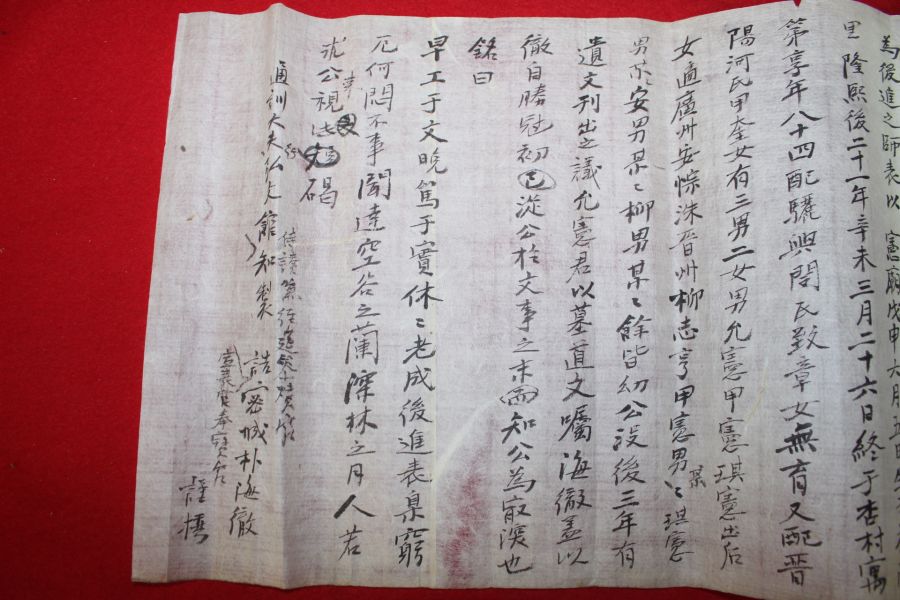 為後進之師表以憲廟戊申六月
里隆熙後二十一年辛未三月二十六日終于杏村寓
第享年八十四配驪興閔氏致章女無育又配晋
陽河氏甲奎女有三男二女男允憲甲憲琪憲出后
女適廬州安悰洙晋州柳志亨甲憲男某琪憲
男某安男某〻柳男某〻餘皆幼公没後三年有
遺文刊出之議允憲君以墓道文囑海徹盖以
徹自勝冠初已從公於文事之末而知公為最深也
銘曰
早工于文晚篤于實休〻老成後進表臬窮
厄何悶不事聞達空谷之蘭深林之月人若
求公視此碣
通訓大夫行弘文館知製
誥密城朴海徹
謹撰